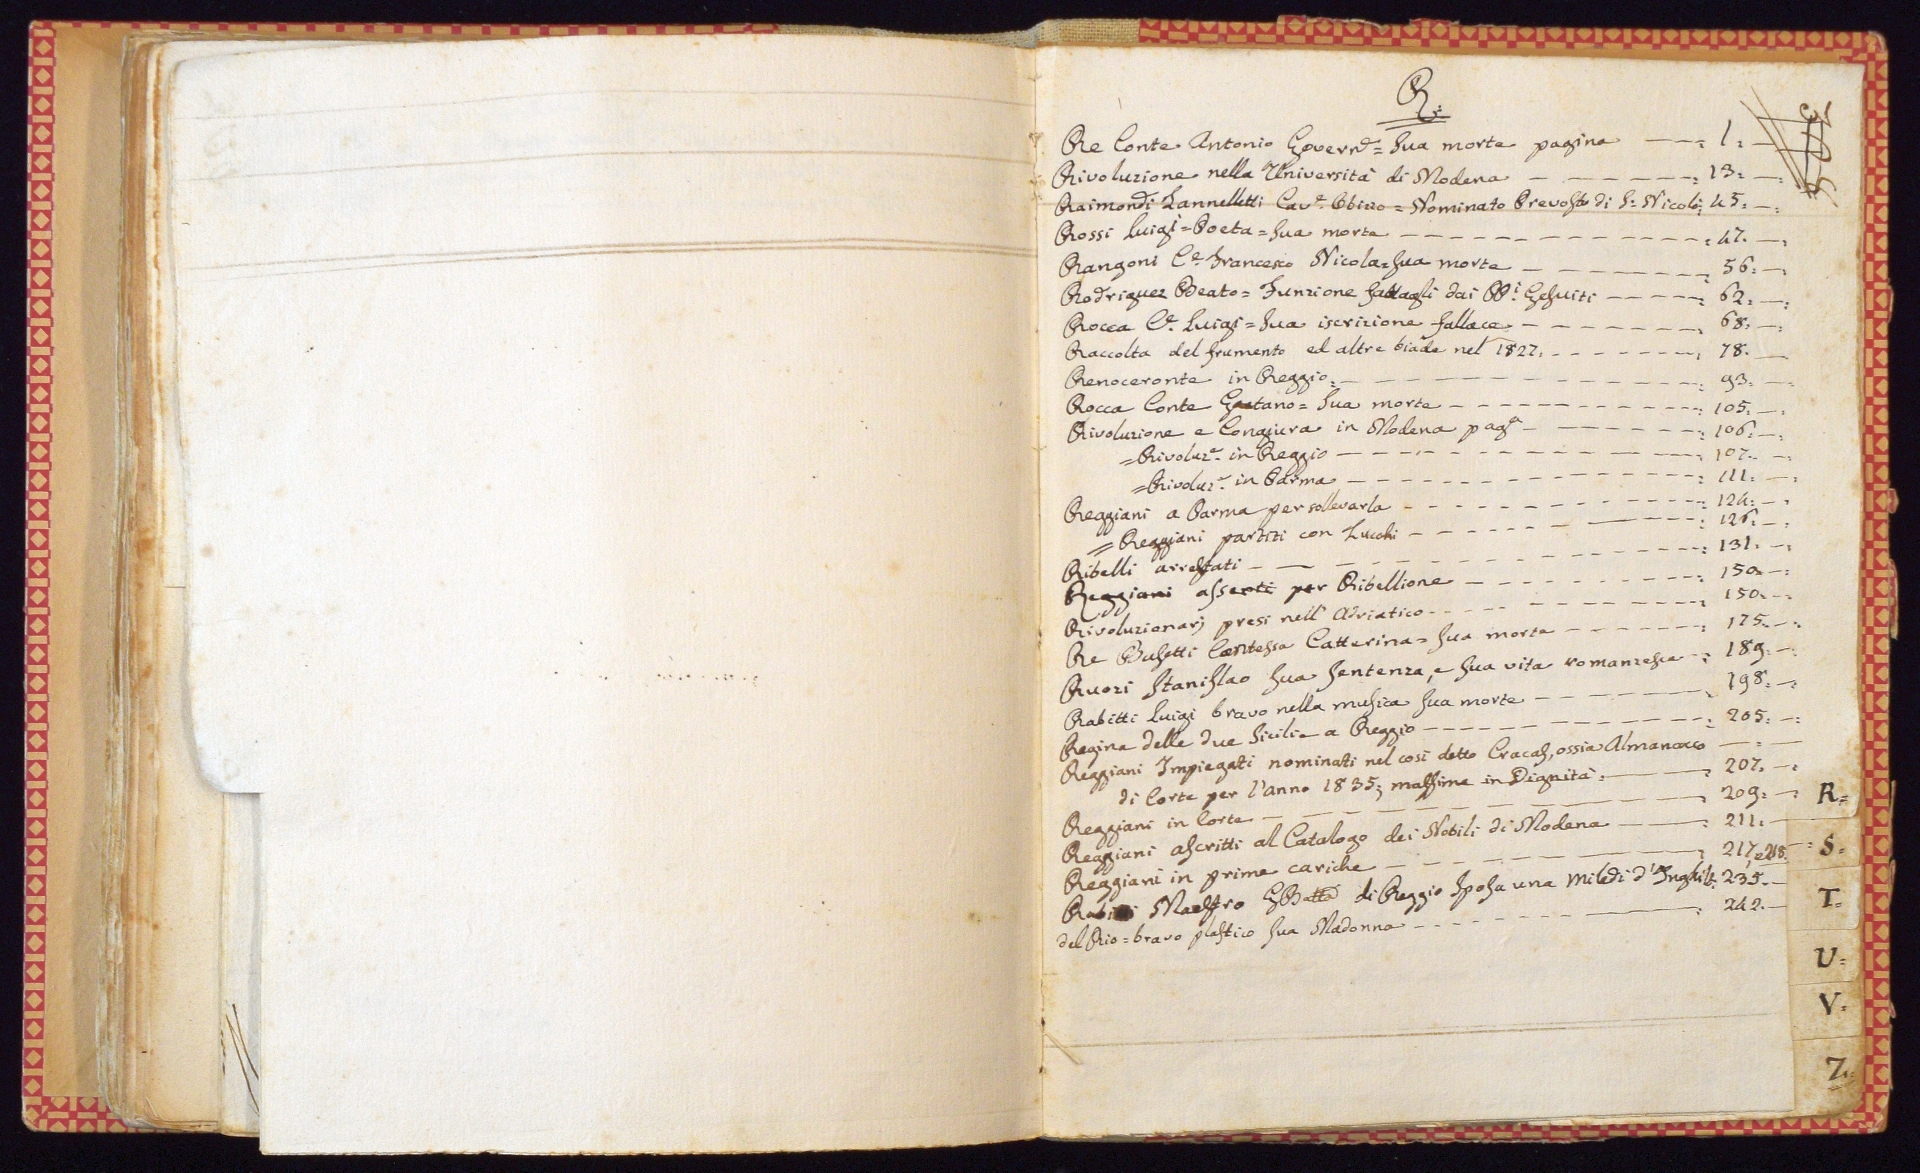 R.
Re Conte Antonio Govern.e = Sua morte pagina — 1. —
Rivoluzione nella Università di Modena — 13. —
Raimondi Zannelletti Cav.e Obizo = Nominato Prevosto di S. Nicolò 45. —
Rossi Luigi = Poeta = Sua morte — 47. —
Rangoni C.e Francesco Nicola = Sua morte — 56. —
Rodriguez Beato = Funzione fattagli dai PP.i Gesuiti — 62. —
Rocca C.e Luigi = Sua iscrizione fallace — 68. —
Raccolta del frumento ed altre biade nel 1827. — 78. —
Renoceronte in Reggio. — 93. —
Rocca Conte Gaetano = Sua morte — 105. —
Rivoluzione e Congiura in Modena pag.a — 106. —
= Rivoluz.e in Reggio — 107. —
= Rivoluz.e in Parma — 111. —
Reggiani a Parma per sollevarla — 124. —
= Reggiani partiti con Zucchi — 126. —
Ribelli arrestati — 131. —
Reggiani assenti per Ribellione — 150. —
Rivoluzionarj presi nell' Adriatico — 150. —
Re Busetti Contessa Catterina = Sua morte — 175. —
Ruozi Stanislao Sua Sentenza, e Sua vita romanzesca — 189. —
Rabitti Luigi bravo nella musica Sua morte — 198. —
Regina delle due Sicilie a Reggio — 205. —
Reggiani Impiegati nominati nel così detto Cracas, ossia Almanacco —
di Corte per l'anno 1835; massime in Dignità. — 207. —
Reggiani in Corte — 209. —
Reggiani ascritti al Catalogo dei Nobili di Modena — 211. —
Reggiani in prime cariche — 217, e 218.
Maestro GBatta di Reggio Sposa una Miledi d'Inghilt. 235. —
del Rio = bravo plastico Sua Madonna — 242. —
R =
S =
T =
U =
V =
Z =